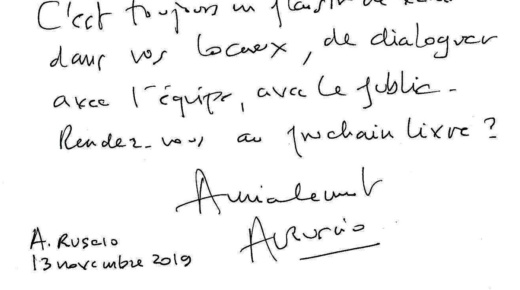 C'est toujours un plaisir de
dans vos locaux, de dialoguer
avec l'équipe, avec le public.
Rendez-vous au prochain livre ?
Amicalement
A. Ruscio
13 novembre 2019